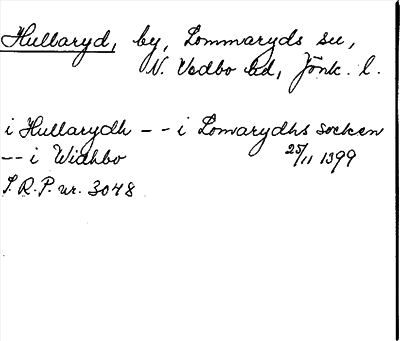 Hullaryd, by, Lommaryds sn,
N. Vedbo hd, Jönk. l.
i Hullarydh -- i Lomarydhs socken
-- i Widhbo 25/11 1399
S.R.P. nr. 3048